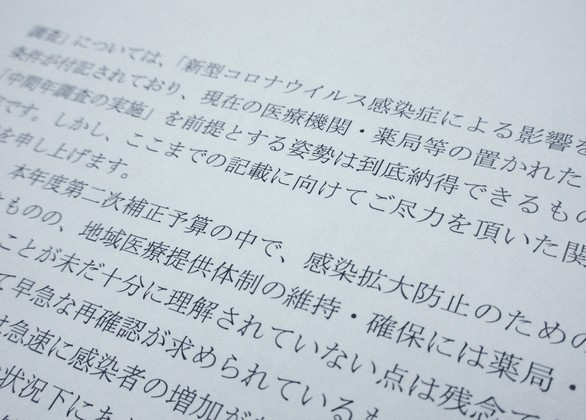 調査」については、「新型コロナウイルス感染症による影響を
条件が付記されており、現在の医療機関・薬局等の置かれた
「中間年調査の実施」を前提とする姿勢は到底納得できるもの
です。しかし、ここまでの記載に向けてご尽力を頂いた関
を申し上げます。
本年度第二次補正予算の中で、感染拡大防止のための
ものの、地域医療提供体制の維持・確保には薬局・
ことが未だ十分に理解されていない点は残念で
て早急な再確認が求められているも
は急速に感染者の増加が
状況下にあ